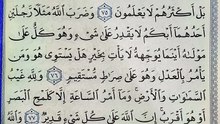 بَلْ أَكْثَرُهُمْ لَا يَعْلَمُونَ ٧٥ وَضَرَبَ اللَّهُ مَثَلًا رَجُلَيْنِ
أَحَدُهُمَا أَبْكَمُ لَا يَقْدِرُ عَلَىٰ شَيْءٍ وَهُوَ كَلٌّ عَلَىٰ
مَوْلَاهُ أَيْنَمَا يُوَجِّهْهُ لَا يَأْتِ بِخَيْرٍ هَلْ يَسْتَوِي هُوَ وَمَنْ
يَأْمُرُ بِالْعَدْلِ وَهُوَ عَلَىٰ صِرَاطٍ مُسْتَقِيمٍ ٧٦ وَلِلَّهِ غَيْبُ
السَّمَوَاتِ وَالْأَرْضِ وَمَا أَمْرُ السَّاعَةِ إِلَّا كَلَمْحِ الْبَصَرِ
أَوْ هُوَ أَقْرَبُ إِنَّ اللَّهَ عَلَىٰ كُلِّ شَيْءٍ قَدِيرٌ ٧٧